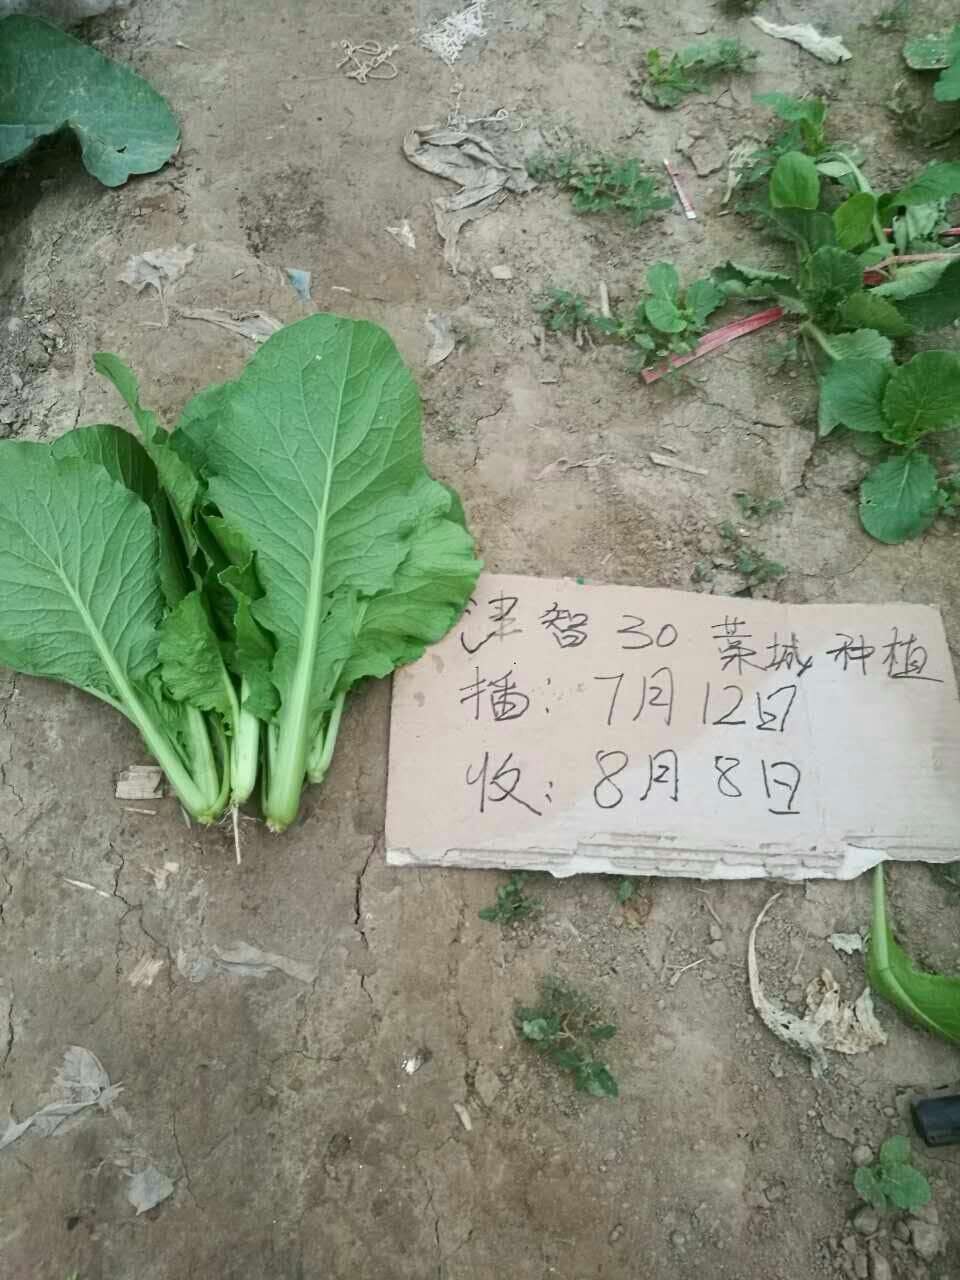 津智30 藁城种植
播:7月12日
收:8月8日